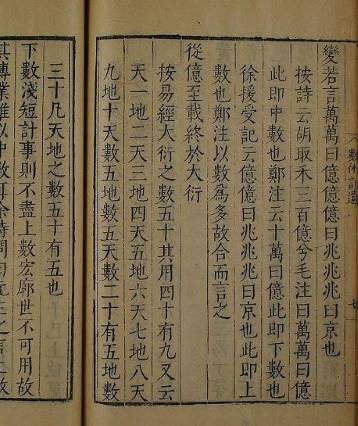 變若言萬萬曰億億億曰兆兆兆曰京也
按詩云胡取禾三百億兮毛注曰萬萬曰億
此即中數也鄭注云十萬曰億此即下數也
徐援受記云億億曰兆兆兆曰京也此即上
數也鄭注以數爲多故合而言之
從億至載終於大衍
按易經大衍之數五十其用四十有九又云
天一地二天三地四天五地六天七地八天
九地十天數五地數五天數二十有五地數
三十凡天地之數五十有五也
下數淺短計事則不盡上數宏廓世不可用故